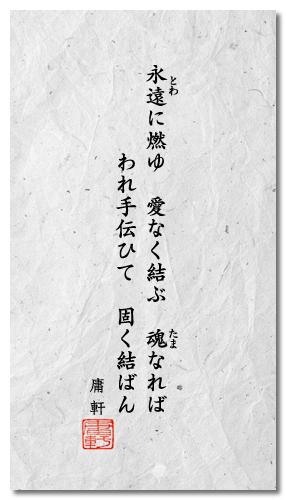 永遠に燃ゆ　愛なく結ぶ　魂なれば
とわ
たま
われ手伝ひて　固く結ばん
庸軒
庸軒